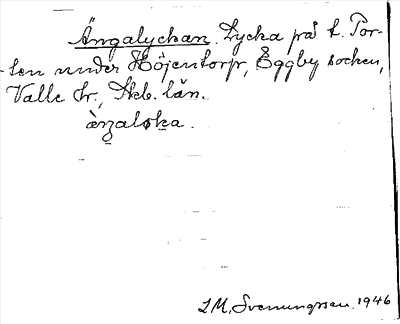 Ängalyckan. Lycka på t. Tor-
sen under Höjentorp, Eggby socken,
Valle hr., Skb. län.
L M, Svenungsson. 1946